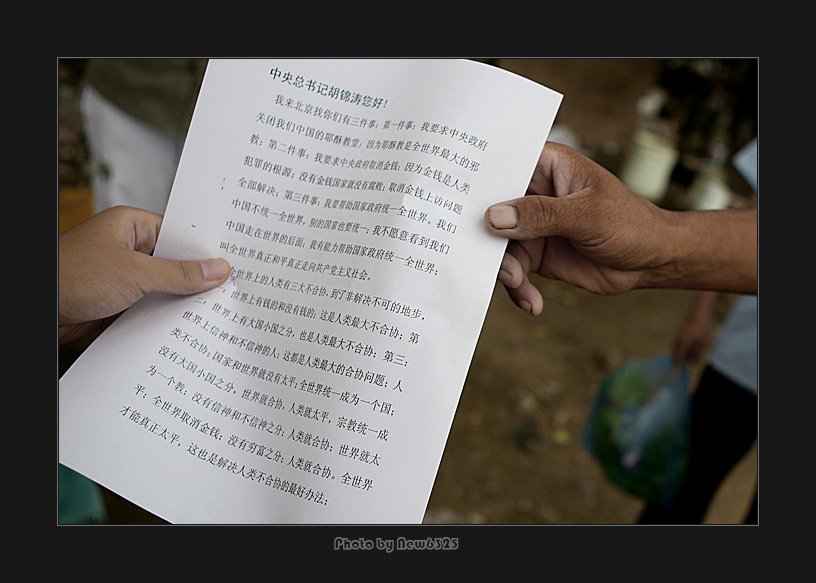 中央总书记胡锦涛您好！
我来北京找你们有三件事；第一件事；我要求中央政府
关闭我们中国的耶酥教堂；因为耶酥教是全世界最大的邪
教；第二件事；我要求中央政府取消金钱；因为金钱是人类
犯罪的根源；没有金钱国家就没有腐败；取消金钱上访问题
全部解决；第三件事；我要帮助国家政府统一全世界。我们
中国不统一全世界，别的国家也要统一；我不愿意看到我们
中国走在世界的后面；我有能力帮助国家政府统一全世界；
叫全世界真正和平真正走向共产党主义社会。
全世界上的人类有三大不合协，到了非解决不可的地步，
；世界上有钱的和没有钱的；这是人类最大不合协；第
二；世界上有大国小国之分，也是人类最大不合协；第三；
世界上信神和不信神的人；这都是人类最大的合协问题；人
类不合协；国家和世界就没有太平；全世界统一成为一个国；
没有大国小国之分，世界就合协，人类就太平，宗教统一成
为一个教；没有信神和不信神之分；人类就合协；世界就太
平；全世界取消金钱；没有穷富之分；人类就合协。全世界
才能真正太平，这也是解决人类不合协的最好办法；
Photo by New6325